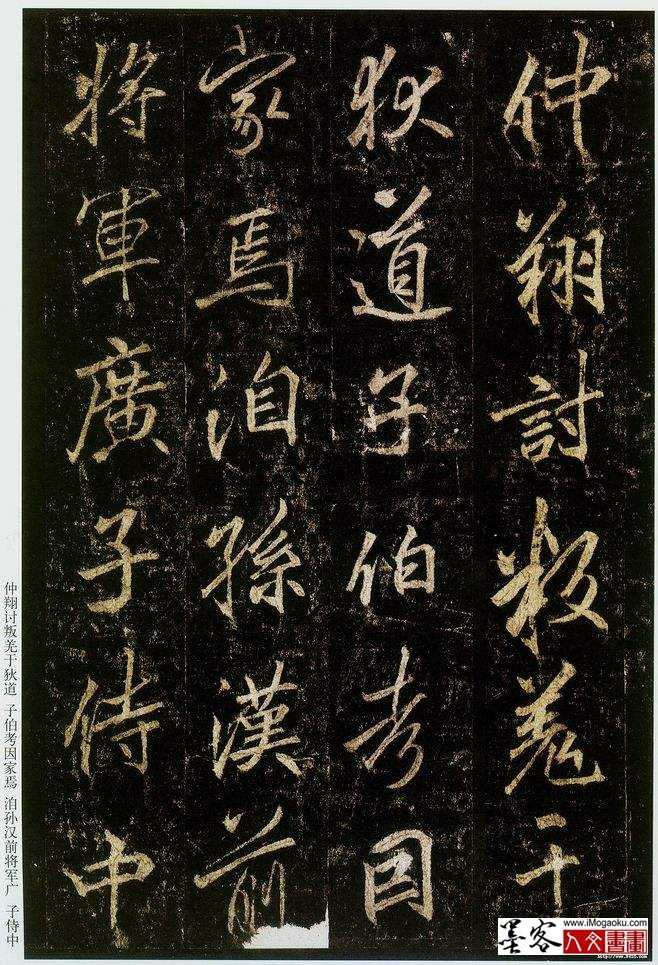 仲翔討叛羌于
狄道子伯考因
家焉洎孫漢前
將軍廣子侍中
仲翔讨叛羌于狄道 子伯考因家焉 洎孙汉前将军广 子侍中
墨客 www.iMogaoku.com
人文書畫
http://www.9610.com